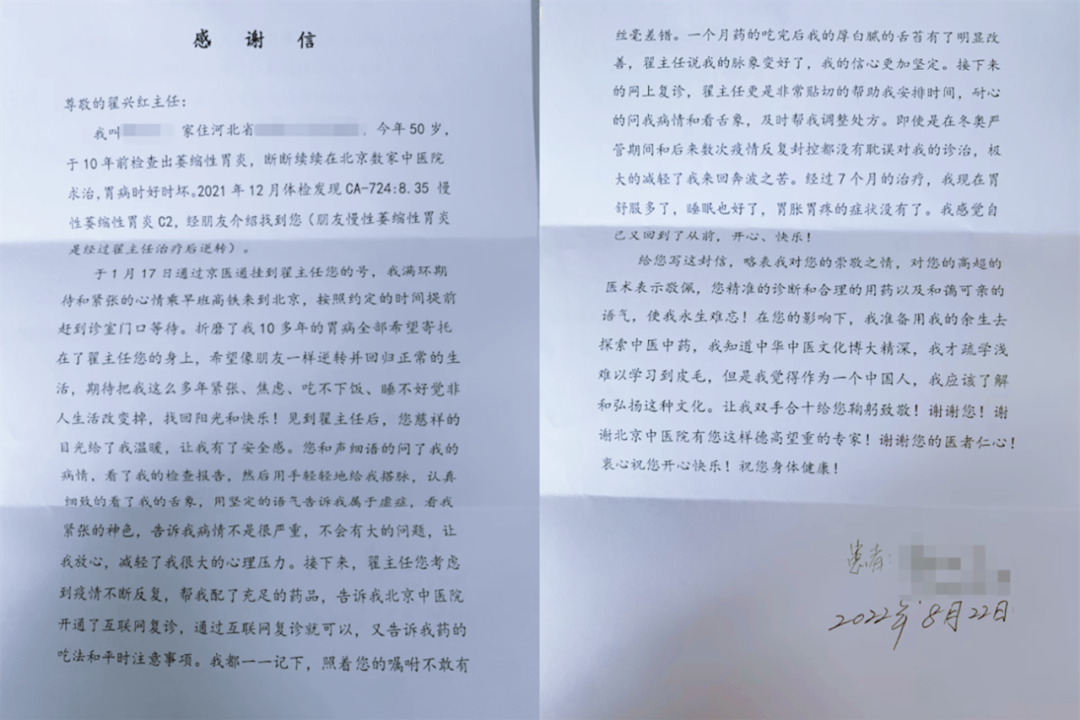 感谢信
尊敬的翟兴红主任：
我叫 家住河北省 ，今年50岁，
于10年前检查出萎缩性胃炎，断断续续在北京数家中医院
求治,胃病时好时坏。2021年12月体检发现CA-724:8.35 慢
性萎缩性胃炎C2，经朋友介绍找到您（朋友慢性萎缩性胃炎
是经过翟主任治疗后逆转）。
于1月17日通过京医通挂到翟主任您的号，我满环期
待和紧张的心情乘早班高铁来到北京，按照约定的时间提前
赶到诊室门口等待。折磨了我10多年的胃病全部希望寄托
在了翟主任您的身上，希望像朋友一样逆转并回归正常的生
活，期待把我这么多年紧张、焦虑、吃不下饭、睡不好觉非
人生活改变掉，找回阳光和快乐！见到翟主任后，您慈祥的
目光给了我温暖，让我有了安全感。您和声细语的问了我的
病情，看了我的检查报告，然后用手轻轻地给我搭脉，认真
细致的看了我的舌象，用坚定的语气告诉我属于虚症，看我
紧张的神色，告诉我病情不是很严重，不会有大的问题，让
我放心，减轻了我很大的心理压力。接下来，翟主任您考虑
到疫情不断反复，帮我配了充足的药品，告诉我北京中医院
开通了互联网复诊，通过互联网复诊就可以，又告诉我药的
吃法和平时注意事项。我都一一记下，照着您的嘱咐不敢有
丝毫差错。一个月药的吃完后我的厚白腻的舌苔有了明显改
善，翟主任说我的脉象变好了，我的信心更加坚定。接下来
的网上复诊，翟主任更是非常贴切的帮助我安排时间，耐心
的问我病情和看舌象，及时帮我调整处方。即使是在冬奥严
管期间和后来数次疫情反复封控都没有耽误对我的诊治，极
大的减轻了我来回奔波之苦。经过7个月的治疗，我现在胃
舒服多了，睡眠也好了，胃胀胃疼的症状没有了。我感觉自
己又回到了从前，开心、快乐！
给您写这封信，略表我对您的崇敬之情，对您的高超的
医术表示敬佩，您精准的诊断和合理的用药以及和蔼可亲的
语气，使我永生难忘！在您的影响下，我准备用我的余生去
探索中医中药，我知道中华中医文化博大精深，我才疏学浅
难以学习到皮毛，但是我觉得作为一个中国人，我应该了解
和弘扬这种文化。让我双手合十给您鞠躬致敬！谢谢您！谢
谢北京中医院有您这样德高望重的专家！谢谢您的医者仁心！
衷心祝您开心快乐！祝您身体健康！
患者：
2022年8月22日